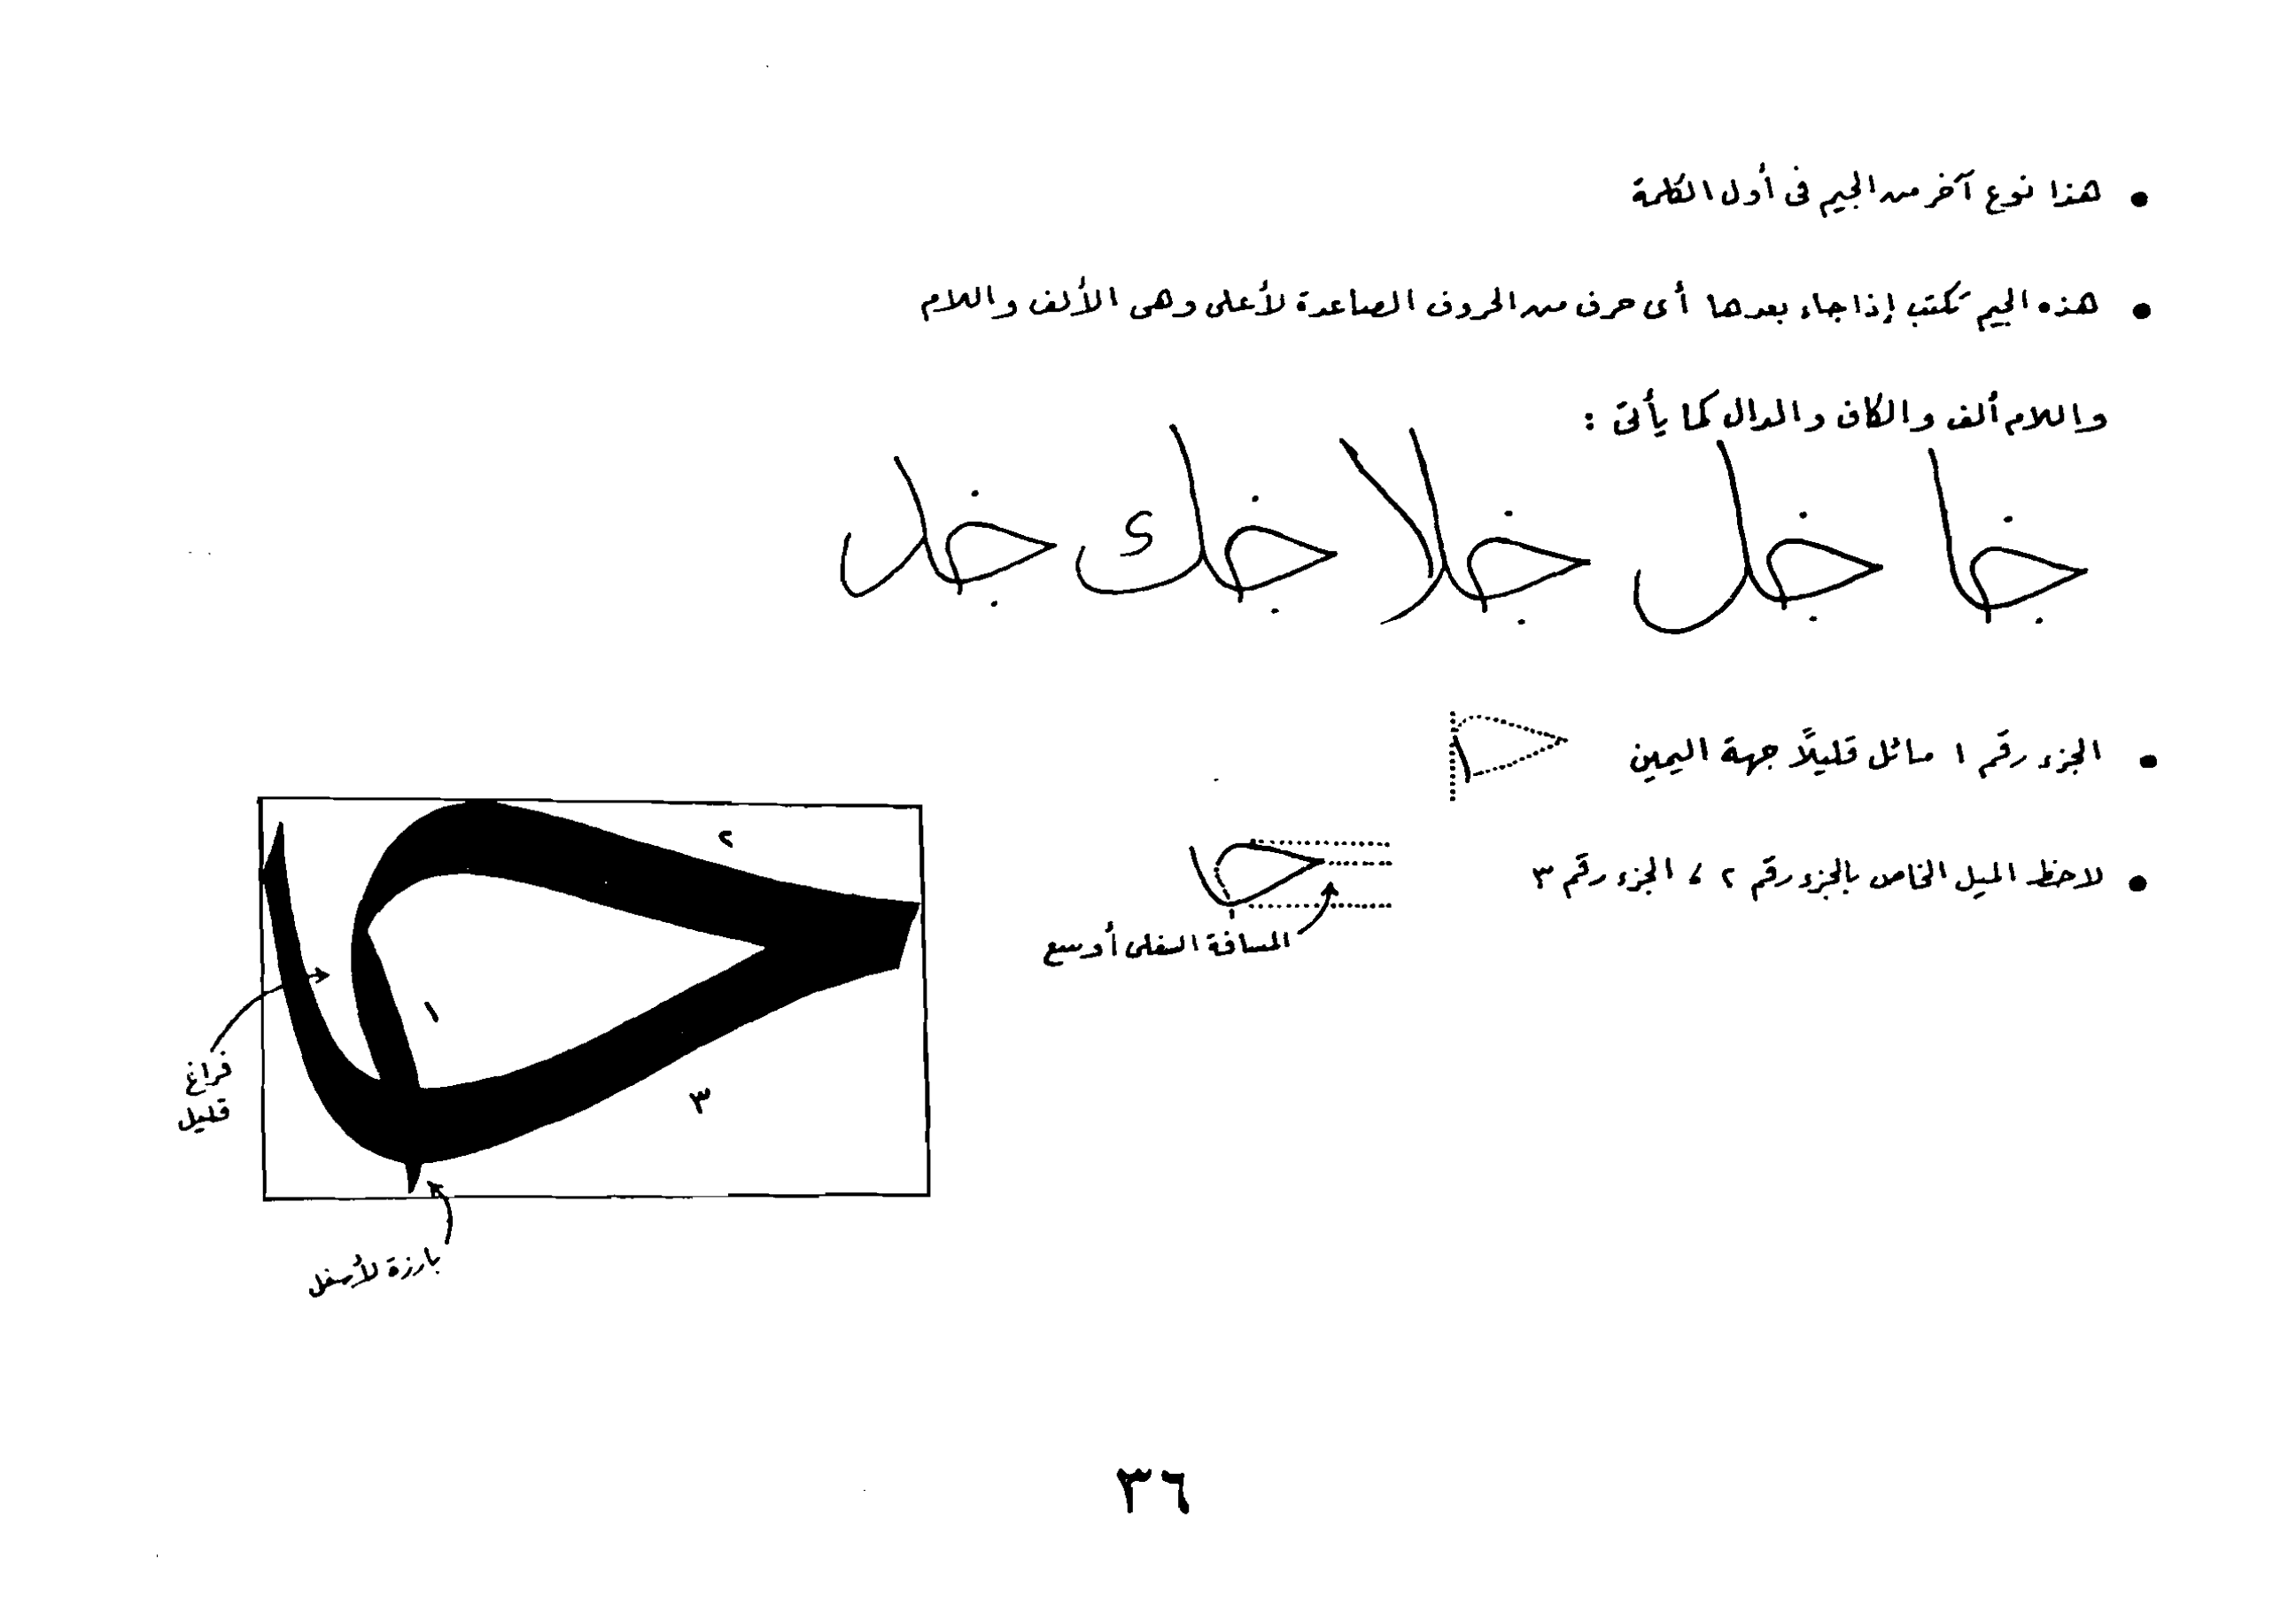 • هذا نوع آخر من الجيم فى أول الكلمة
• هذه الجيم تكتب إذا جاء بعدها أى حرف من الحروف الصاعدة لأعلى وهى الألف واللام
واللام ألف والكاف والدال كما يأتى :
خجا خجل خجلا خجك خجد
• الجزء رقم ١ مائل قليلاً جهة اليمين
• لاحظ الميل الخاص بالجزء رقم ٢ ، الجزء رقم ٣
المسافة السفلى أوسع
٢
١
٣
فراغ
قليل
بارزة للأسفل
٣٦